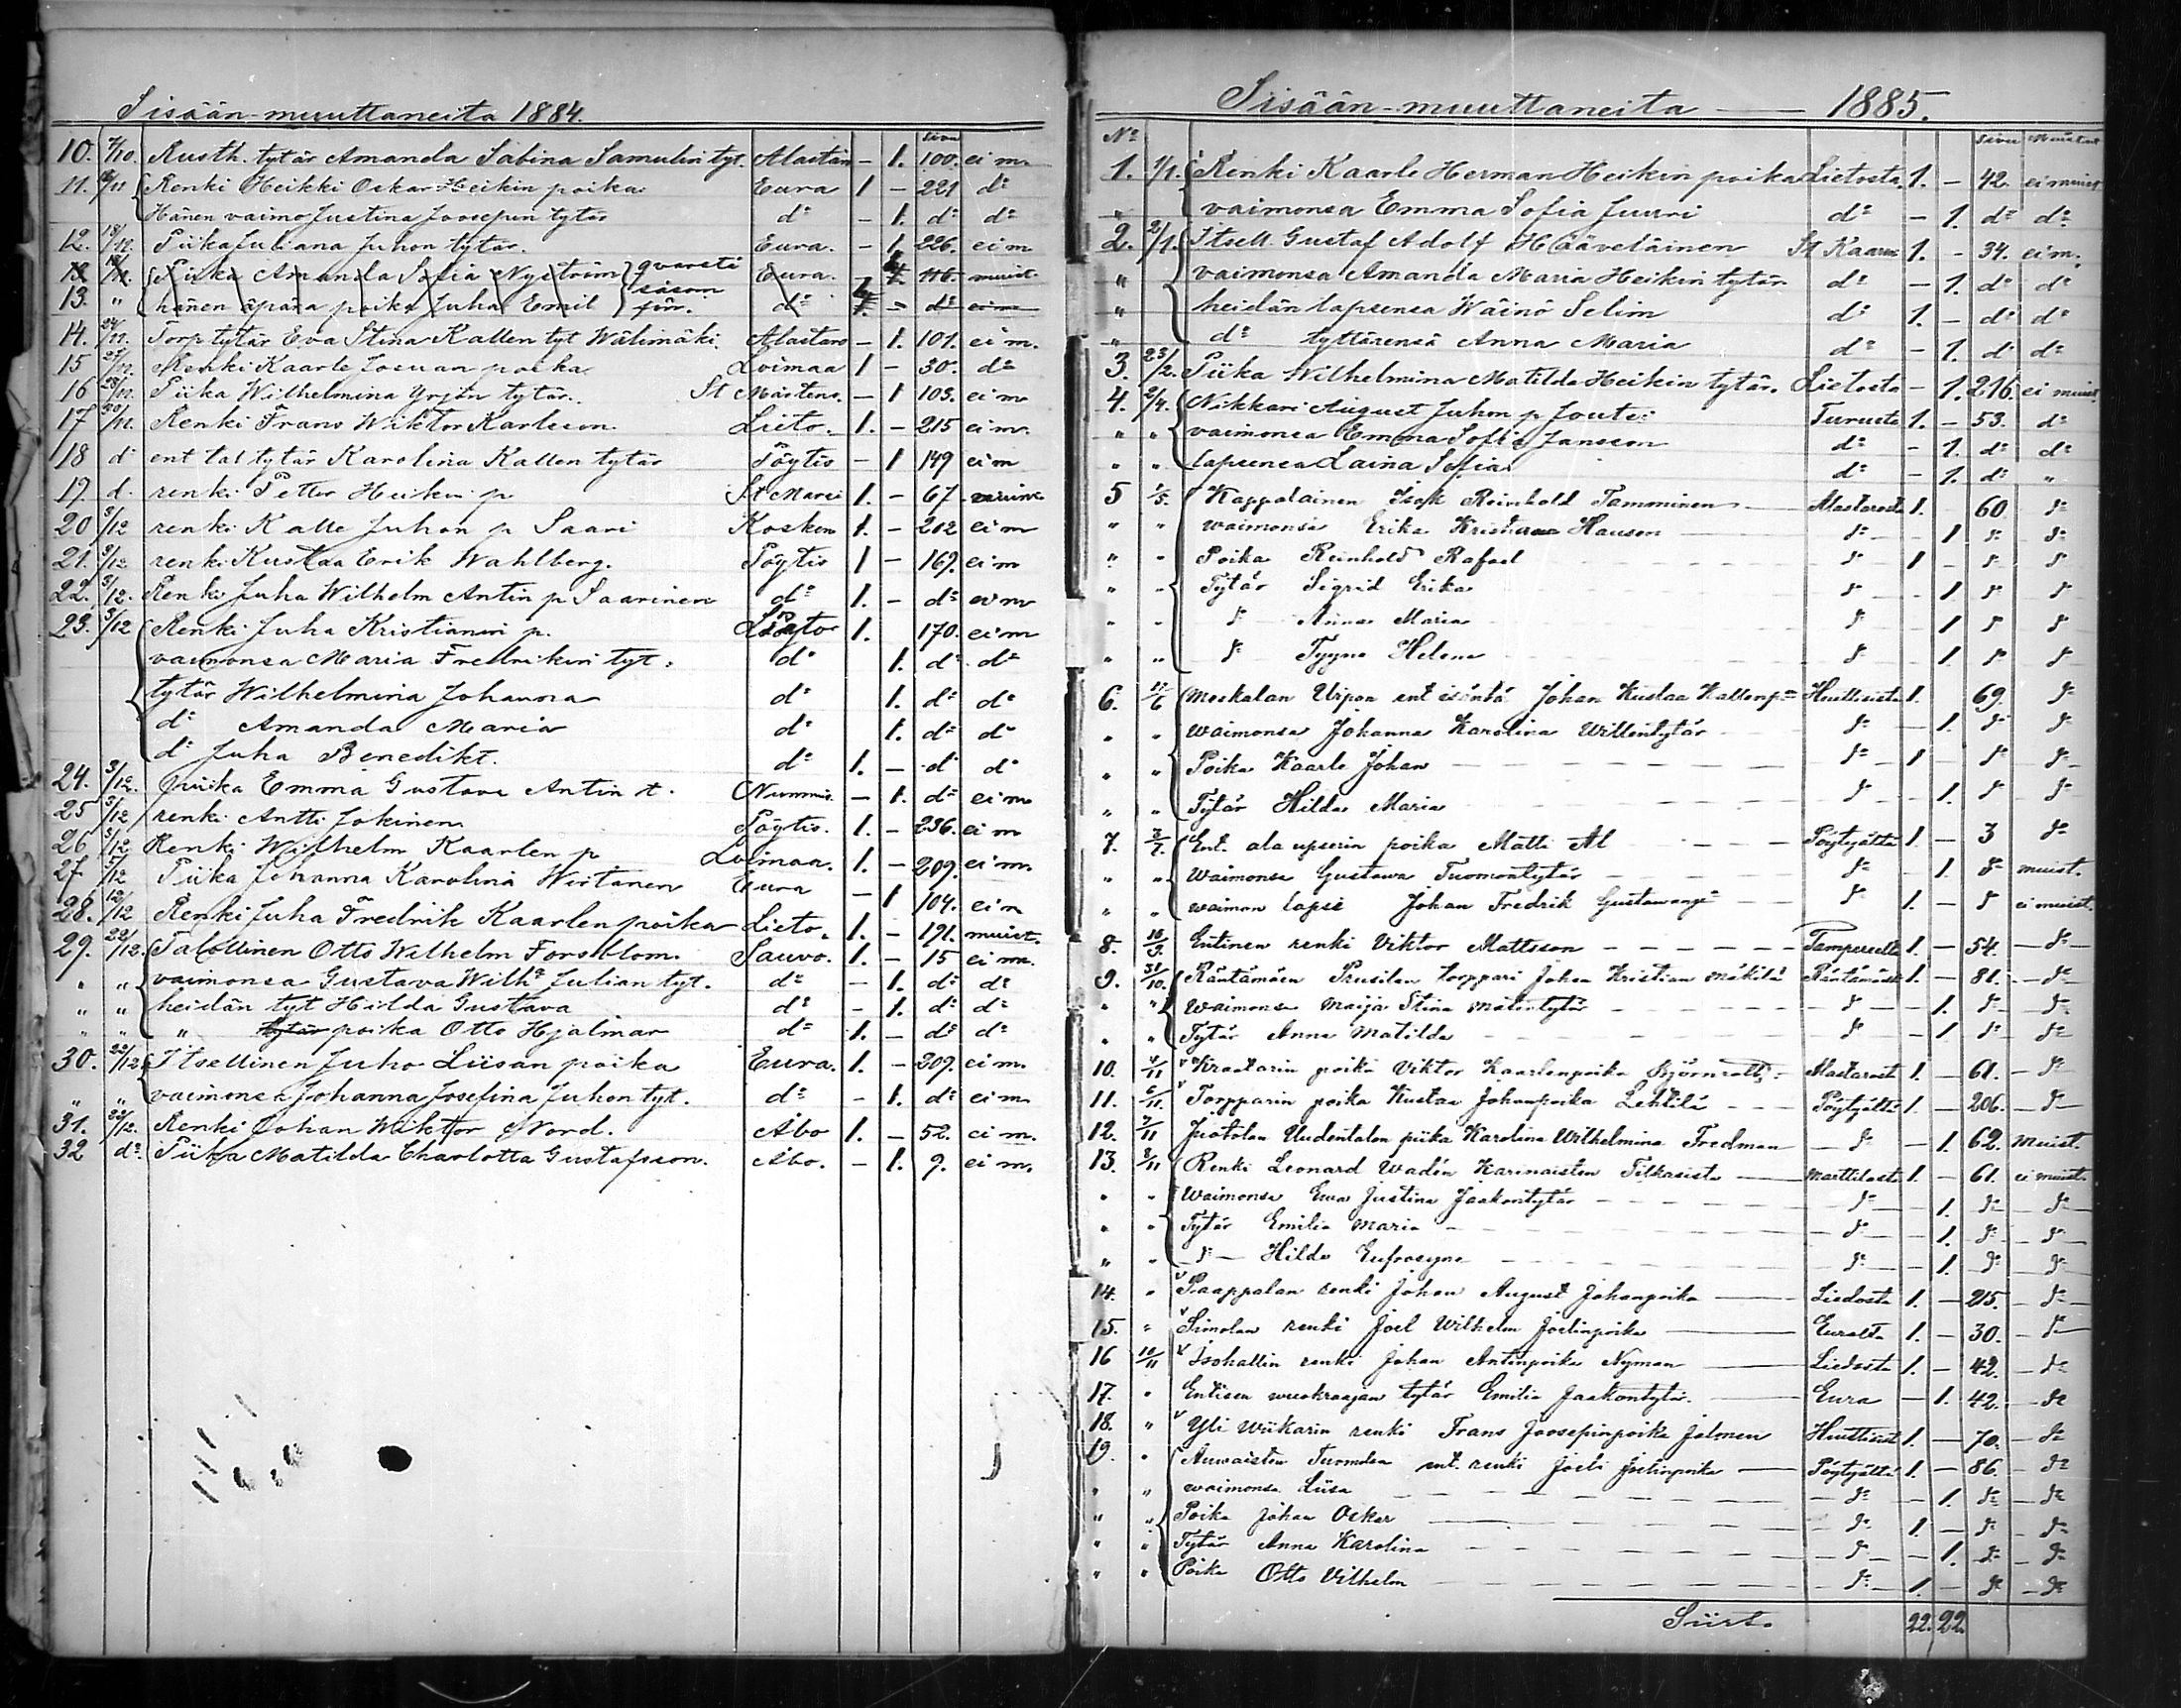 Sisään-muuttaneita 1884.
sivu
10. 7/10. Rusth. tytär Amanda Sabina Samulin tyt. Alastaro - 1. 100. ei m.
11. Renki Heikki Oskar Heikin poika Eura 1 - 221 d:o
Hänen vaimo Justina Joosepin tytär d:o - 1. d:o d:o
12. Piika Juliana Juhon tytär. Eura. - 1. 226. ei m
13. Piika Amanda Sofia Nyström qvarstå Eura. 1. 116. muist.
13. " hänen äpärä poika Juha Emil såsom för. d:o 1. - d:o ei m
14. Torp tytär Eva Stina Kallen tyt Wälimäki. Alastaro - 1. 101. ei m.
15 Renki Kaarle Josuan poika Loimaa 1 - 30. d:o
16 Piika Wilhelmina Yrjön tytär. St Mårtens. - 1 103. ei m
17 Renki Frans Wiktor Karlsson. Lieto. 1. - 215 ei m.
18 d:o ent tal tytär Karolina Kallen tytär Pöytis - 1 149 ei m
19. d:o renki Petter Heikin p. St Marie 1. - 67
20 3/12 renki Kalle Juhon p Saari Kosken 1. - 212 ei m
21. 3/12 renki Kustaa Erik Wahlberg. Pöytis 1 - 169. ei m
22. 3/12. Renki Juha Wilhelm Antin p Saarinen d:o 1. - d:o ei m
23. 3/12 Renki Juha Kristianin p. 1. 170. ei m
vaimonsa Maria Fredrikin tyt. d:o 1. d:o d:o
tytär Wilhelmina Johanna d:o 1. d:o d:o
d:o Amanda Maria d:o 1. d:o d:o
d:o Juha Benedikt. d:o 1. - d:o d:o
24. 3/12. piika Emma Gustava Antin t. Nummis. - 1. d:o ei m
25 3/12 renki Antti Jokinen Pöytis. 1. - 236. ei m
26 3/12 Renki Wilhelm Kaarlen p Loimaa. 1. - 209. ei m.
27 5/12 Piika Johanna Karolina Wirtanen Eura - 1 104. ei m
28. 12/12 Renki Juha Fredrik Kaarlen poika Lieto. 1. - 191. muist.
29. 22/12. Talollinen Otto Wilhelm Forsblom. Sauvo. 1. - 15 ei m.
" " vaimonsa Gustava Wilh:a Julian tyt. d:o - 1. d:o d:o
" " heidän tyt Hilda Gustava d:o - 1. d:o d:o
" " " tytär poika Otto Hjalmar d:o 1. - d:o d:o
30. 22/12 Itsellinen Juho Liisan poika Eura. 1. - 209. ei m.
" " vaimonsa Johanna Josefina Juhon tyt. d:o - 1. d:o ei m
31. 22/12. Renki Johan Wiktor Nord. Åbo 1. - 52. ei m.
32 d:o Piika Matilda Charlotta Gustafsson. Åbo. - 1. 9. ei m.
Sisään-muuttaneita 1885.
N:o Sivu Muistut
1. 1/1. Renki Kaarle Herman Heikin poika Lietosta 1. - 42. ei muist.
" vaimonsa Emma Sofia Juuri d:o - 1. d:o d:o
2. 2/1. Itsell. Gustaf Adolf Häävetäinen St Kaarin 1. - 34. ei m.
" vaimonsa Amanda Maria Heikin tytär d:o - 1. d:o d:o
" heidän lapsensa Wäinö Selim d:o 1. - d:o d:o
" d:o tyttärensä Anna Maria d:o - 1. d:o d:o
3. 23/2. Piika Wilhelmina Matilda Heikin tytär. Lietosta - 1. 216. ei muist.
4. 2/4. Nikkari August Juhon p Joutsi Turusta 1. - 53. d:o
" " vaimonsa Emma Sofia Jansson d:o - 1. d:o d:o
" " lapsensa Laina Sofia d:o - 1. d:o "
5 1/5. Kappalainen Isak Reinhold Tamminen Alastarosta 1. 60 d:o
" " waimonsa Erika Kristiana Hanson d:o 1 d:o d:o
" " Poika Reinhold Rafael d:o 1 - d:o d:o
" " Tytär Sigrid Erika d:o 1 d:o d:o
" " d:o Anna Maria d:o 1 d:o d:o
" " d:o Tyyne Helena d:o - 1. d:o d:o
6. 17/6 Moskalan Uipon ent isäntä Johan Kustaa Kallenp:a Huittisista 1. 69. d:o
" " Waimonsa Johanna Karolina Willentytär d:o - 1. d:o d:o
" " Poika Kaarle Johan d:o 1 d:o d:o
" " Tytär Hilda Maria d:o - 1. d:o d:o
7. 2/7. Ent. ala upserin poika Matti Al Pöytyältä 1. - 3 d:o
" " Waimonsa Gustawa Tuomontytär d:o 1. d:o muist.
" " waimon lapsi Johan Fredrik Gustawanp:a d:o 1. - d:o ei muist.
8. 16/9. Entinen renki Viktor Mattsson Tampereelta 1. - 54. d:o
9. 31/10. Räntämäen Prusilan torppari Johan Kristian Mäkilä Räntämäeltä 1. - 81. d:o
" " Waimonsa Maija Stina Matintytär d:o - 1. d:o d:o
" " Tytär Anna Matilda d:o - 1 d:o d:o
10. 4/11 Kraatarin poika Viktor Kaarlenpoika Alastarost. 1. - 61. d:o
11. 6/11. Torpparin poika Kustaa Johanpoika Lehtilä Pöytyältä 1. - 206. d:o
12. 7/11 Juotolan Uudentalon piika Karolina Wilhelmina Fredman d:o - 1. 62. Muist.
13. 8/11 Renki Leonard Wadén Karinaisten Tilkasista Marttilasta 1. - 61. ei muist.
" " Waimonsa Ewa Justina Jaakontytär d:o 1. d:o d:o
" " Tytär Emilia Maria d:o 1. d:o d:o
" " d:o Hilda Eufrosyne d:o - 1. d:o d:o
14. " Paappalan renki Johan August Johanpoika Liedosta 1. - 215. d:o
15. " Simolan renki Joel Wilhelm Joelinpoika Euralta 1. - 30. d:o
16 10/11 Isohallin renki Johan Antinpoika Nyman Liedosta 1. - 42. d:o
17. " Entisen wuokraajan tytär Emilia Jaakontytär. Eura - 1. 42. d:o
18. " Yli Wiikarin renki Frans Joosepinpoika Jalonen Huittisist. 1. - 70. d:o
19. " Auwaisten Tuomolan ent. renki Joeli Joelinpoika Pöytyältä 1. - 86. d:o
" " waimonsa Liisa d:o - 1. d:o d:o
" " Poika Johan Oskar d:o 1. - d:o d:o
" " Tytär Anna Karolina d:o - 1. d:o d:o
" " Poika Otto Vilhelm d:o 1. - d:o d:o
Siirt. 22. 22.